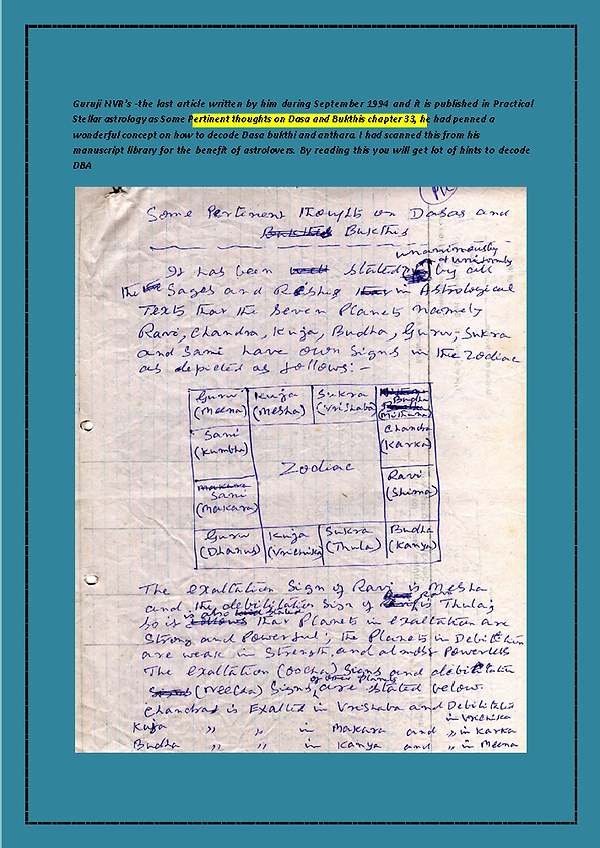 Guruji NVR's -the last article written by him during September 1994 and it is published in Practical
Stellar astrology as Some Pertinent thoughts on Dasa and Bukthis chapter 33, he had penned a
wonderful concept on how to decode Dasa bukthi and anthara. I had scanned this from his
manuscript library for the benefit of astrolovers. By reading this you will get lot of hints to decode
DBA
Some Pertinent thoughts on Dasas and
Bukthis
unanimously
& uniformly
It has been stated by all
the Sages and Rishis in Astrological
Texts that the seven Planets namely
Ravi, Chandra, Kuja, Budha, Guru, Sukra
and Sani have own signs in the Zodiac
as depicted as follows:-
Guru Kuja Sukra Budha
(Meena) (Mesha) (Vrishaba) (Mithuna)
Sani Chandra
(Kumbha) (Karka)
Zodiac
Sani Ravi
(Makara) (Shima)
Guru Kuja Sukra Budha
(Dhanus) (Vrichika) (Thula) (Kanya)
The exaltation Sign of Ravi is Mesha
and the debilitation Sign of Ravi is Thula;
So is also stated that Planets in exaltation are
Strong and Powerful; the Planets in Debilitation
are weak in Strength, and almost Powerless
The exaltation (oocha) Signs and debilitation
(Neecha) Signs of other Planets are stated below
Chandra is Exalted in Vrishaba and Debilitated
in Vrichika
Kuja " " in Makara and " in Karka
Budha " " in Kanya and " in Meena